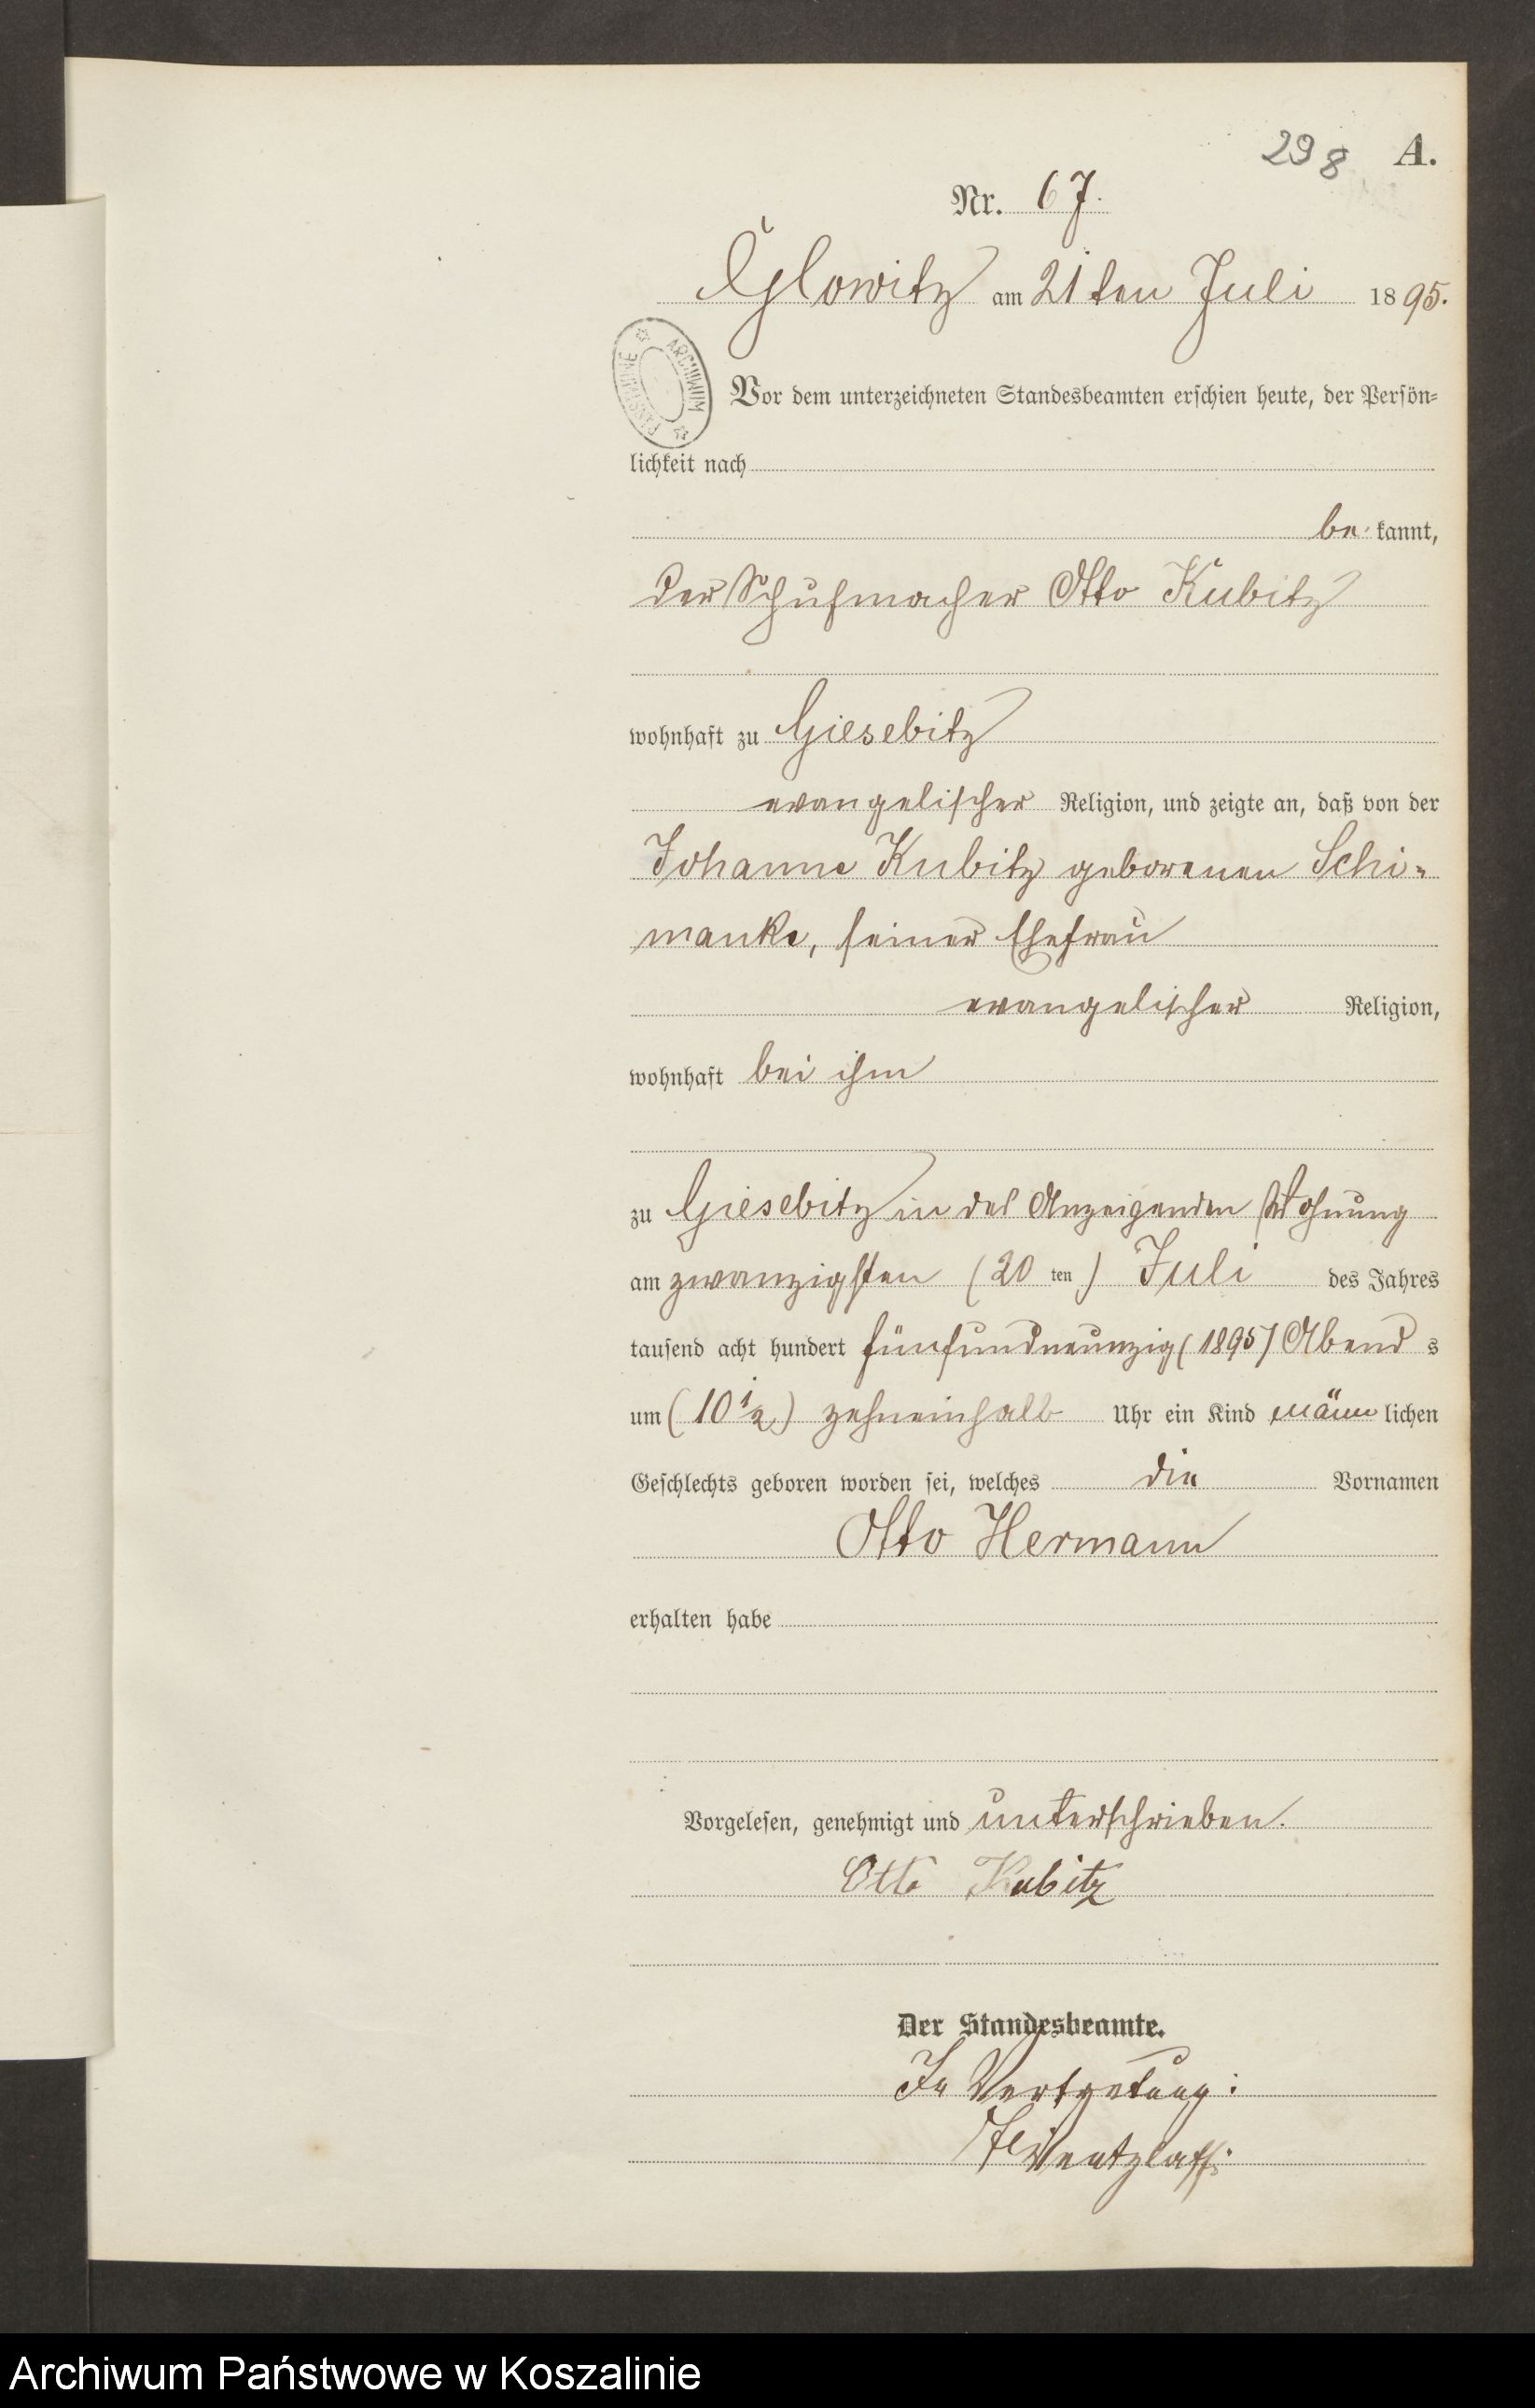 298 A.
Nr. 67.
Glowitz am 21ten Juli 1895.
Vor dem unterzeichneten Standesbeamten erschien heute, der Persön=
lichkeit nach
be kannt,
der Schuhmacher Otto Kubitz
wohnhaft zu Giesebitz
evangelischer Religion, und zeigte an, daß von der
Johanne Kubitz geborenen Schi-
manke, seiner Ehefrau
evangelischer Religion,
wohnhaft bei ihm
zu Giesebitz in des Anzeigenden Wohnung
am zwanzigsten (20 ten) Juli des Jahres
tausend acht hundert fünfundneunzig (1895) Abend s
um (10 1/2) zehneinhalb Uhr ein Kind männ lichen
Geschlechts geboren worden sei, welches die Vornamen
Otto Hermann
erhalten habe
Vorgelesen, genehmigt und unterschrieben.
Otto Kubitz
Der Standesbeamte.
In Vertretung:
Wentzlaff.
ARCHIWUM PAŃSTWOWE
Archiwum Państwowe w Koszalinie